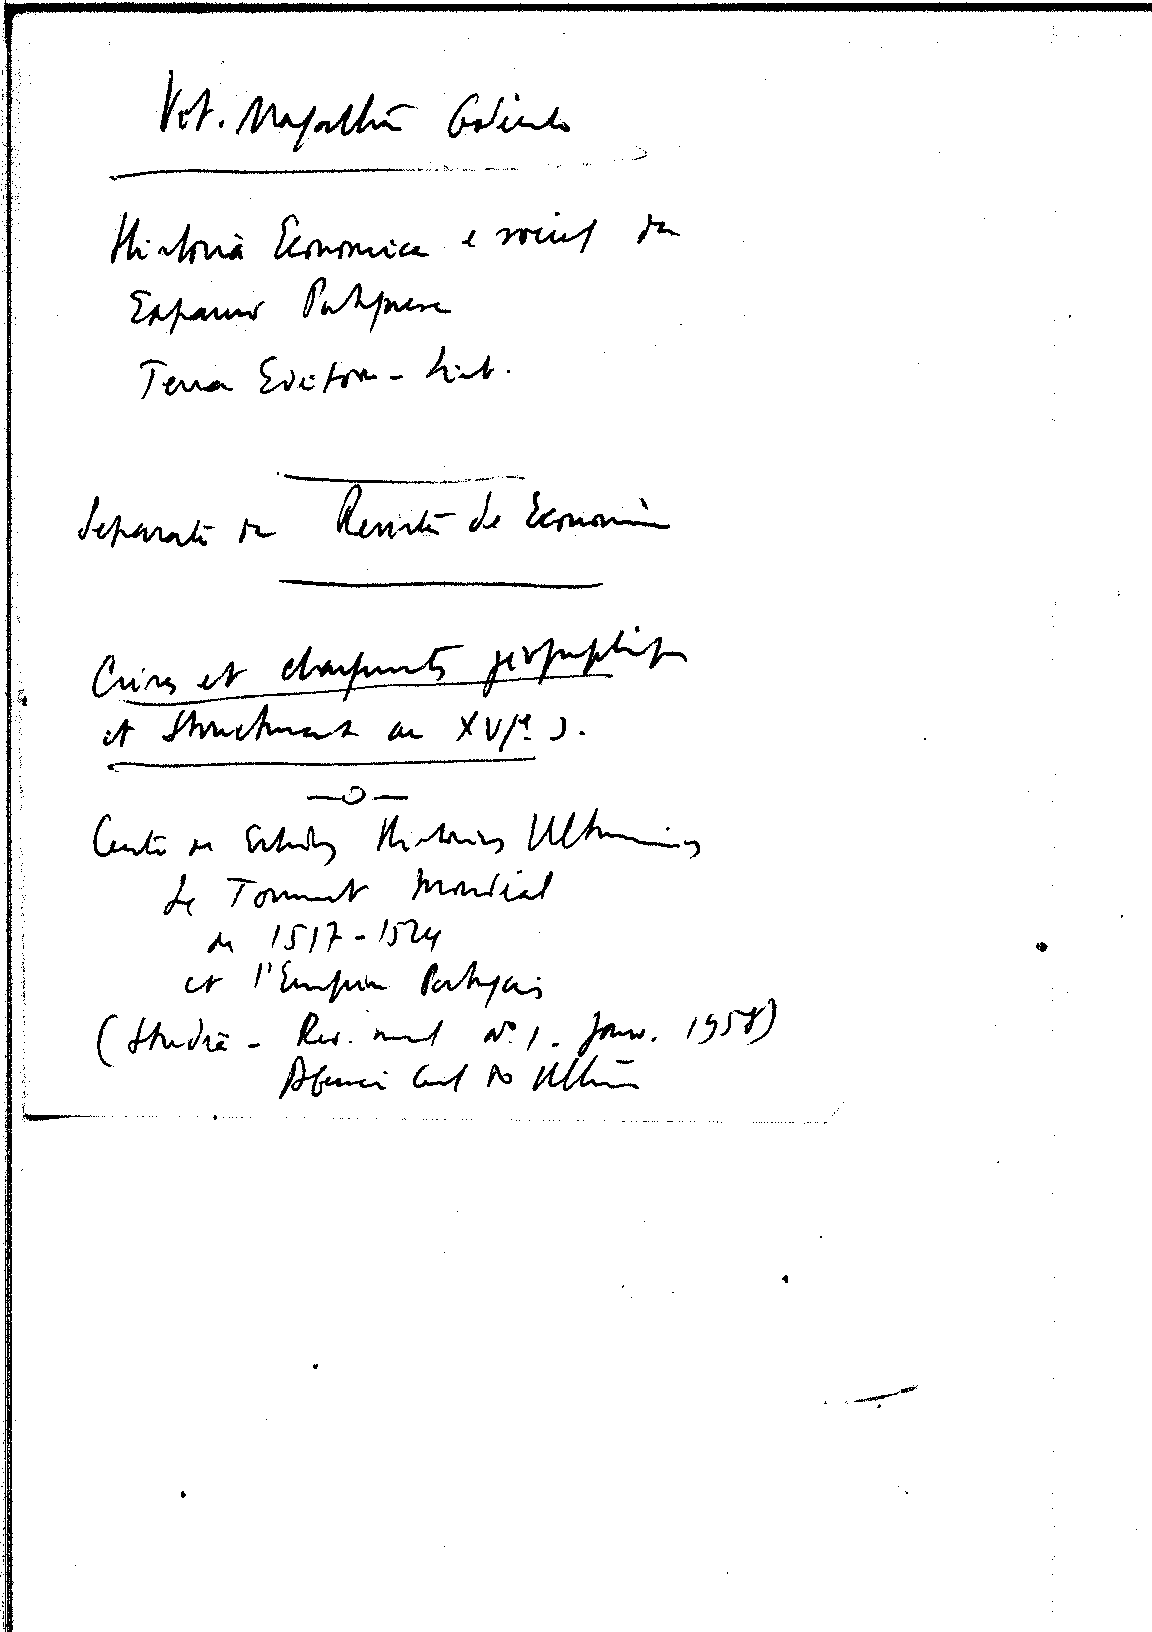 Vit. Magalhães Godinho
Historia Economica e social da
Expansão Portuguesa
Terra Editora - Lisb.
Separata da Revista de Economia
Crises et changements geographiques
et Structuraux au XVIe s.
Centro de Estudos Historicos Ultramarinos
Le Tournant Mondial
de 1517-1524
et l'Empire Portugais
(Studia - Rev. semest. nº 1. Janv. 1958)
Agencia Geral do Ultramar